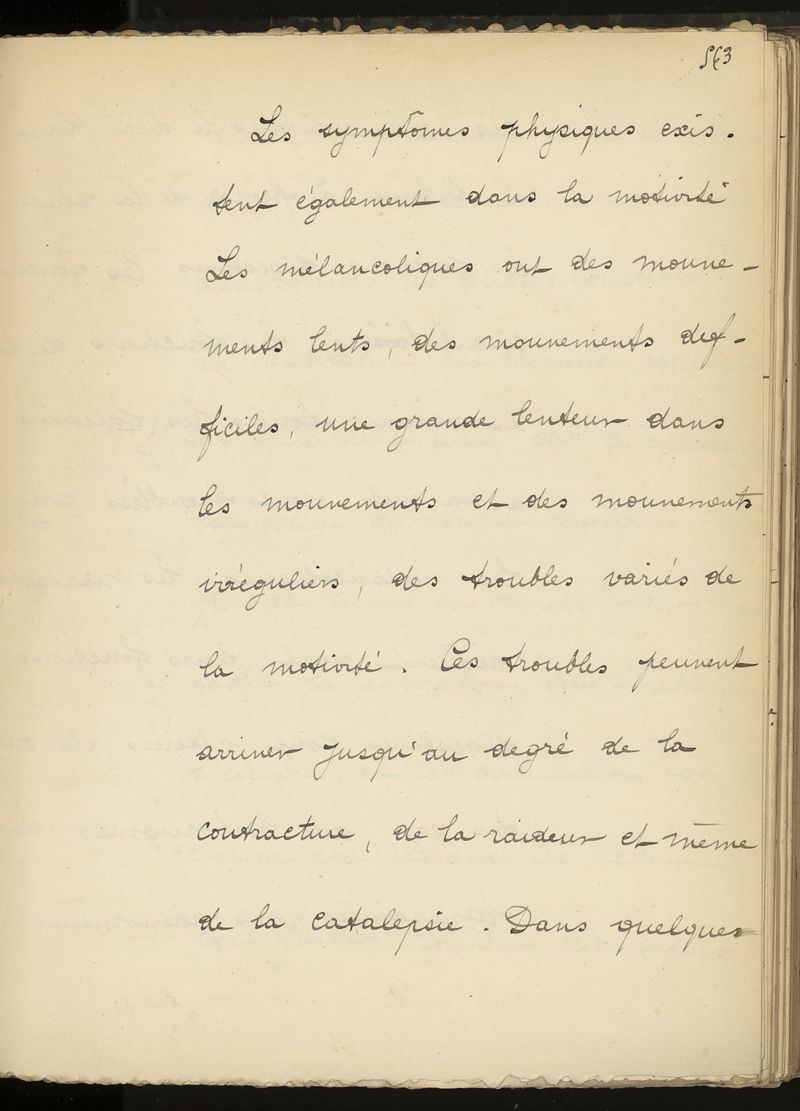 563
Les symptômes physiques exis-
tent également dans la motivité
Les mélancoliques ont des mouve-
ments lents, des mouvements dif-
ficiles, une grande lenteur dans
les mouvements et des mouvements
irréguliers, des troubles variés de
la motivité. Ces troubles peuvent
arriver jusqu'au degré de la
contracture, de la raideur et même
de la catalepsie. Dans quelques